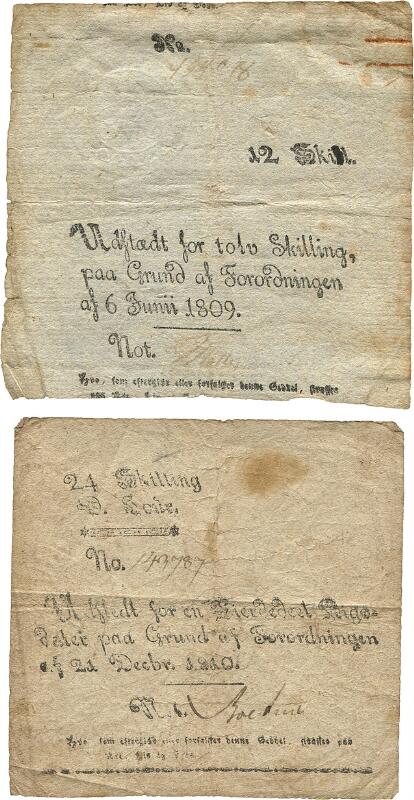 No.
12 Skill.
Udstædt for tolv Skilling,
paa Grund af Forordningen
af 6 Junii 1809.
Not.
Hvo, som eftergiør eller forfalsker denne Seddel, straffes
paa
24 Skilling
D. Cour.
No. 149787
Udstedt for en Fierdedeel Rigs-
daler paa Grund af Forordningen
af 21 Decbr. 1810.
Not.
Hvo som eftergiør eller forfalsker denne Seddel, straffes paa
Ære, Liv og Gods.